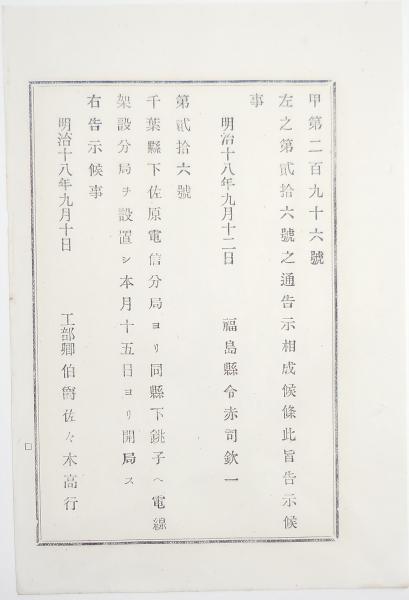 甲第二百九十六號
左之第貳拾六號之通告示相成候條此旨告示候
事
明治十八年九月十二日　福島縣令赤司欽一
第貳拾六號
千葉縣下佐原電信分局ヨリ同縣下銚子ヘ電線
架設分局ヲ設置シ本月十五日ヨリ開局ス
右告示候事
明治十八年九月十日　工部卿伯爵佐々木高行